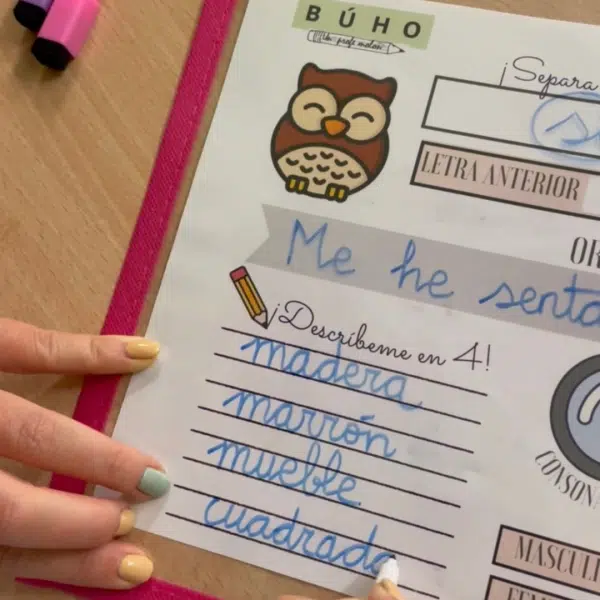 BÚHO
Un profe molón
¡Separa
LETRA ANTERIOR
OR
Me he senta
¡Descríbeme en 4!
madera
marrón
mueble
cuadrado
CONSON
MASCULI